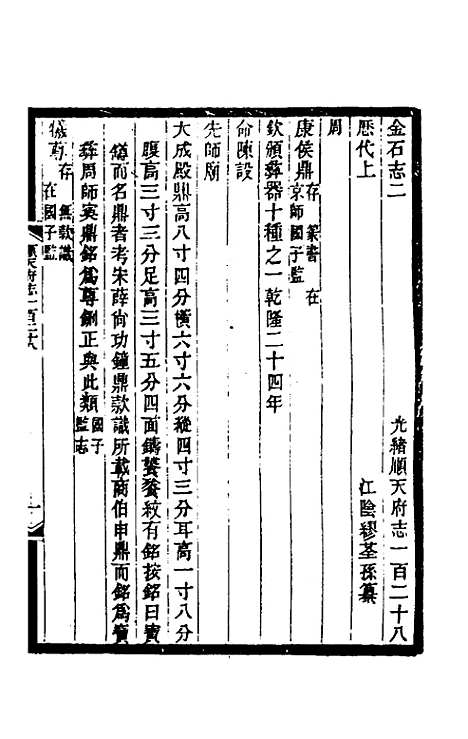 金石志二　光緒順天府志一百二十八
歷代上　江陰繆荃孫纂
周
康侯鼎 存 篆書 在
京師國子監
欽頒彝器十種之一乾隆二十四年
命陳設
先師廟
大成殿鼎高八寸四分橫六寸六分縱四寸三分耳高一寸八分
腹高三寸三分足高三寸五分四面鑄饕餮紋有銘按銘曰寶
而名鼎者考宋薛尙功鐘鼎款識所載商伯申鼎而銘爲寶
彝周師㝨鼎銘爲尊鉶正與此類 國子
監志
犧尊 存 無款識
在國子監
順天府志一百二十八
一